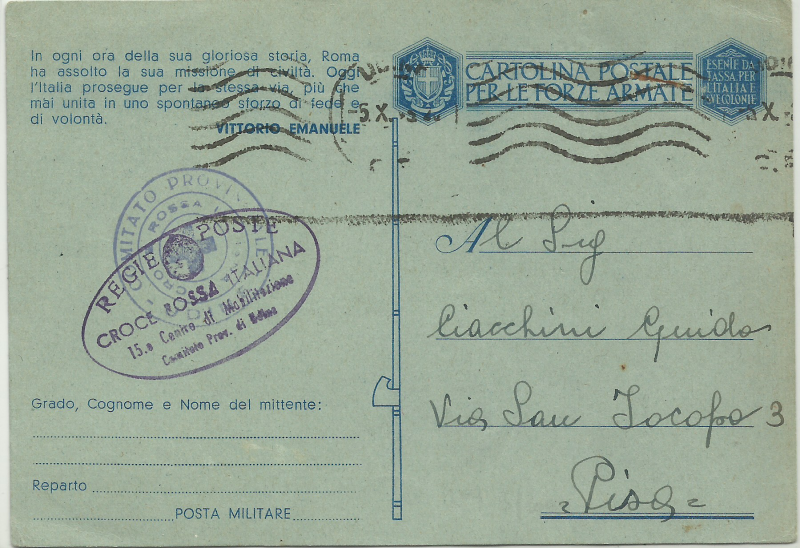 In ogni ora della sua gloriosa storia, Roma
ha assolto la sua missione di civiltà. Oggi
l'Italia prosegue per la stessa via, più che
mai unita in uno spontaneo sforzo di fede e
di volontà.
VITTORIO EMANUELE
CARTOLINA POSTALE
PER LE FORZE ARMATE
ESENTE DA
TASSA PER
L'ITALIA E
SVE COLONIE
5.X
COMITATO PROVINCIALE
CROCE ROSSA
REGIE POSTE
CROCE ROSSA ITALIANA
15.o Centro di Mobilitazione
Comitato Prov. di Udine
Al Sig
Ciacchini Guido
Via San Jacopo 3
Pisa
Grado, Cognome e Nome del mittente:
Reparto
POSTA MILITARE